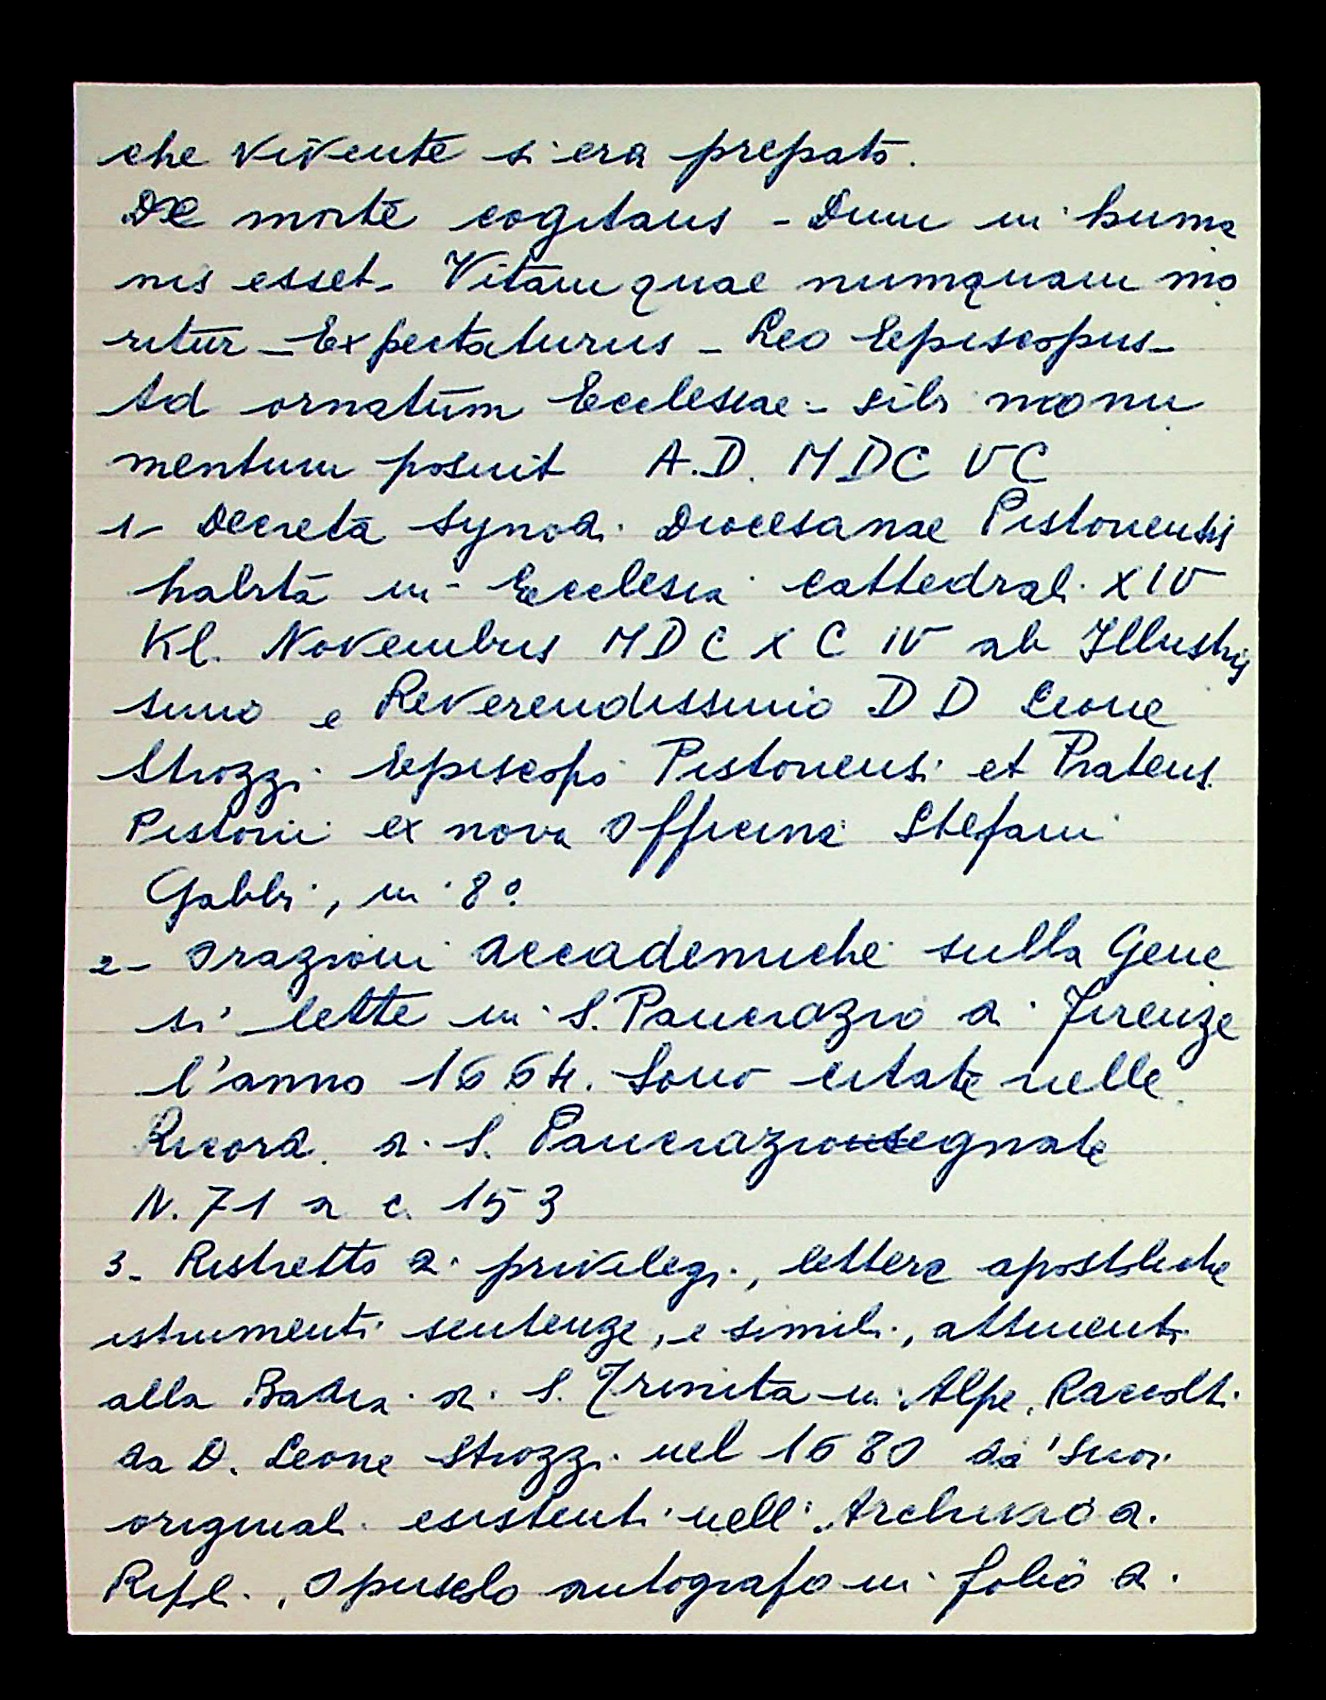 che vivente si era prepato.
De morte cogitans - Dum in huma
nis esset - Vitam quae numquam mo
ritur - Expectaturus - Leo Episcopus -
Ad ornatum Ecclesiae - sibi monu
mentum posuit A.D. MDC VC
1- Decreta Synodi Diocesanae Pistoriensis
habita in Ecclesia cattedrali XIV
Kl. Novembris MDC XC IV ab Illustris
simo e Reverendissimo D D Leone
Strozzi Episcopo Pistoriensi et Pratens.
Pistorii ex nova Officina Stefani
Gabbi, in 8º
2- Orazioni Accademiche sulla Gene
si lette in S. Pancrazio di Firenze
l'anno 1664. Sono citate nelle
Ricord. di S. Pancrazio segnate
N. 71 a c. 153
3- Ristretto di privilegi, lettere apostoliche
istrumenti sentenze, e simili, attinenti
alla Badia di S. Trinita in Alpe, Raccolti
da D. Leone Strozzi nel 1680 da' suoi
originali esistenti nell' Archivio di
Ripoli. Opuscolo autografo in folio di